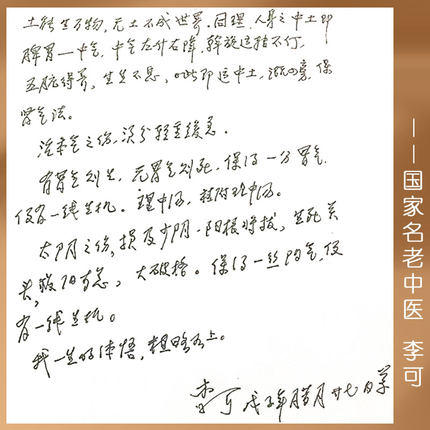 土能生万物,无土不成世界。同理,人身之中土即
脾胃—中气,中气左升右降,斡旋运转不停,
五脏得养,生生不息,此即运中土,溉四旁,保
胃气法。
治本气之伤,须分轻重缓急。
有胃气则生,无胃气则死,保得一分胃气,
便有一线生机。理中汤,桂附理中汤。
太阴之伤,损及少阴,阳根将拔,生死关
头,救阳为急,大破格。保得一丝阳气,便
有一线生机。
我一生的体悟,粗略如上。
李可 戊子年腊月廿七日草
——国家名老中医 李可